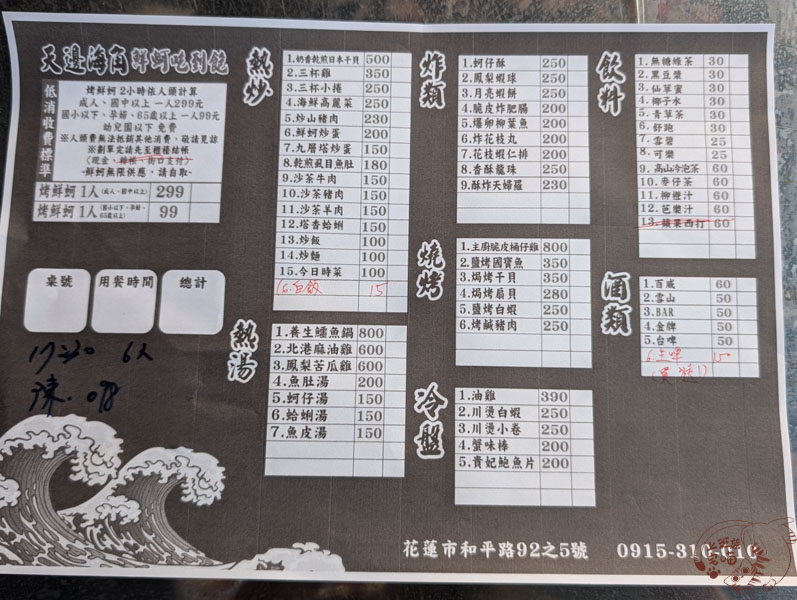 天邊海角鮮蚵吃到飽
低消收費標準
烤鮮蚵2小時依人頭計算
成人、國中以上 一人299元
國小以下、孕婦、65歲以上 一人99元
幼兒園以下 免費
※人頭費無法抵銷其他消費,敬請見諒
※劃單完請先至櫃檯結帳
(現金、轉帳、街口支付)
-鮮蚵無限供應,請自取-
烤鮮蚵1人(成人、國中以上) 299
烤鮮蚵1人(國小以下、孕婦、65歲以上) 99
桌號
用餐時間
總計
17:30 6人
陳.
熱炒
1.奶香乾煎日本干貝 500
2.三杯雞 350
3.三杯小捲 250
4.海鮮高麗菜 250
5.炒山豬肉 230
6.鮮蚵炒蛋 200
7.九層塔炒蛋 150
8.乾煎虱目魚肚 180
9.沙茶牛肉 150
10.沙茶豬肉 150
11.沙茶羊肉 150
12.塔香蛤蜊 150
13.炒飯 100
14.炒麵 100
15.今日時菜 100
16.白飯 15
熱湯
1.養生鱷魚鍋 800
2.北港麻油雞 600
3.鳳梨苦瓜雞 600
4.魚肚湯 200
5.蚵仔湯 150
6.蛤蜊湯 150
7.魚皮湯 150
炸類
1.蚵仔酥 250
2.鳳梨蝦球 250
3.月亮蝦餅 250
4.脆皮炸肥腸 200
5.爆卵柳葉魚 200
6.炸花枝丸 200
7.花枝蝦仁排 200
8.香酥龍珠 250
9.酥炸天婦羅 230
燒烤
1.主廚脆皮桶仔雞 800
2.鹽烤國寶魚 350
3.焗烤干貝 350
4.焗烤扇貝 280
5.鹽烤白蝦 250
6.烤鹹豬肉 250
冷盤
1.油雞 390
2.川燙白蝦 250
3.川燙小卷 250
4.蟹味棒 200
5.貴妃鮑魚片 200
飲料
1.無糖綠茶 30
2.黑豆漿 30
3.仙草蜜 30
4.椰子水 30
5.青草茶 30
6.舒跑 30
7.雪碧 25
8.可樂 25
9.高山冷泡茶 60
10.麥仔茶 60
11.柳橙汁 60
12.芭樂汁 60
13.蘋果西打 60
酒類
1.百威 60
2.雪山 50
3.BAR 50
4.金牌 50
5.台啤 50
6.生啤 150
花蓮市和平路92之5號 0915-316-616